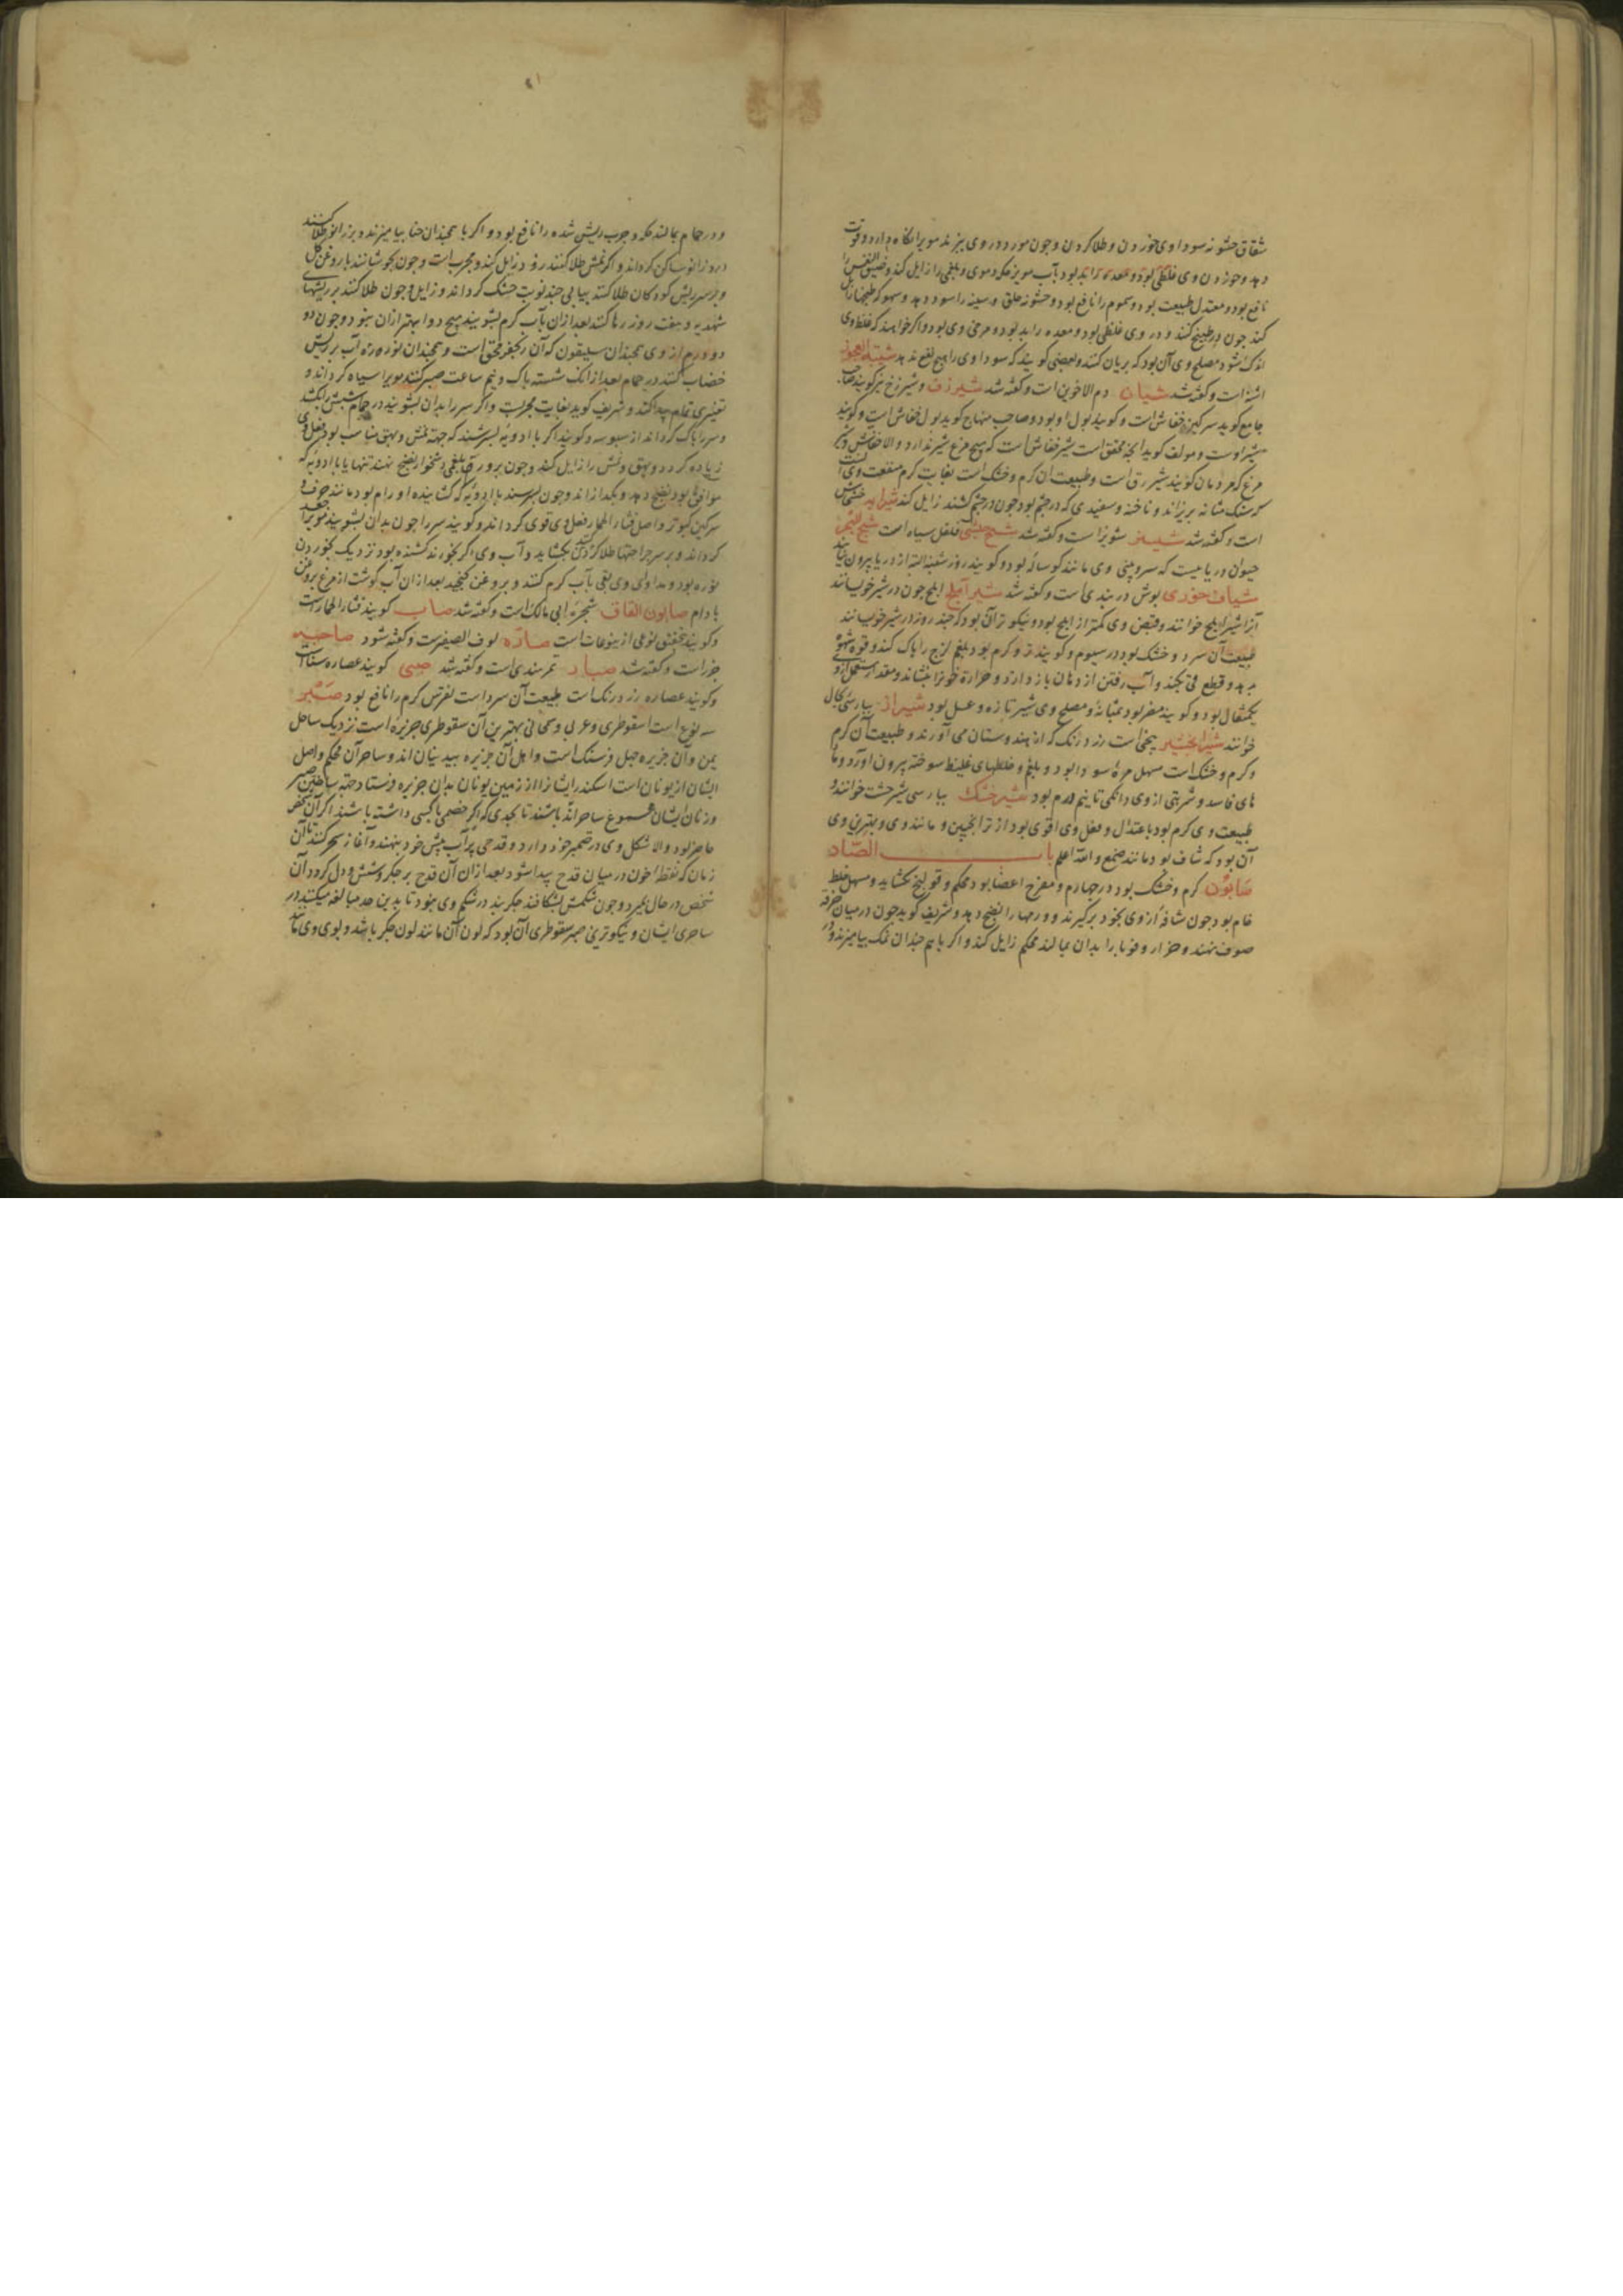 شقاق خشونه سوداوی خوردن و طلا کردن و چون مورد در وی پزند مویرا نگاه دارد و قوت
دهد و خوردن وی غلظی بود و معده را بد بود بآب مویز حکه دموی و بلغمی را زایل کند و ضیق النفس را
نافع بود و معتدل طبیعت بود و سموم را نافع بود و خشونه حلق و سینه را سود دهد و
کند چون در طبیخ کنند و در وی غلظی بود و معده را بد بود و مرخی وی بود و اگر خواهند که غلظ وی
اندک شود مصلح وی آن بود که بریان کنند و بعضی گویند که سوداوی را هیچ نفع ندهد شیبة العجوز
اشنه است و گفته شد شیان دم الاخوین است و گفته شد شیرزق و شیرزخ نیز گویند صاحب
جامع گوید سرکین خفاش است و گویند بول او بود و صاحب منهاج گوید بول خفاش است و گویند
شیر اوست و مولف گوید آنچه محقق است شیر خفاش است که هیچ مرغ شیر ندارد و الا خفاش و
مرغ که مردمان گویند شیر رق است و طبیعت آن گرم و خشک است بغایت گرم منفعت وی آنست
که سنک مثانه بریزاند و ناخنه و سفیدی که در چشم بود چون در چشم کشند زایل کند خشخاش
است و گفته شد شینیز شونیز است و گفته شد شیح حبشی فلفل سیاه است شیخ البحر
حیوان دریا ییست که سر و بینی وی مانند کوساله بود و گویند روز شنبه البته از دریا بیرون نیاید
شیاف خوزی بوش دربندی است و گفته شد شیر آملج ابلج چون در شیر خویسانند
آنرا شیر ابلج خوانند و قبض وی کمتر از ابلج بود و نیکوتر آن بود که چند روز در شیر خویسانند
طبیعت آن سرد و خشک بود در سیوم و گویند تر و گرم بود بلغم لزج را پاک کند و قوه شهوة
بدهد و قطع قی بکند و آب رفتن از دهان باز دارد و حرارة خونرا بنشاند و مقدار مستعمل ازو
یکمثقال بود و گویند مضر بود بمثانه و مصلح وی شیر تازه و عسل بود شیراز بپارسی کال
خوانند بیخی است زرد رنک که از هندوستان می آورند و طبیعت آن گرم
و گرم و خشک است مسهل مره سودا بود و بلغم و خلطهای غلیظ سوخته بیرون آورد و
های فاسد و شربتی از وی دانکی تا نیم درم بود شیر خشک بپارسی شیر خشت خوانند و
طبیعت وی گرم بود باعتدال و فعل وی اقوی بود از ترانجبین و مانند وی و بهترین وی
آن بود که شفاف بود مانند صمغ و الله اعلم باب الصاد
صابون گرم و خشک بود در چهارم و مقرح اعضا بود محکم و قولنج بکشاید و مسهل خلط
خام بود چون شافه از وی بخود برگیرند و ورمها را نضج دهد و شریف گوید چون در میان خرقه
صوف نهند و حزاز و قوبا را بدان بمالند محکم زایل کند و اگر با هم چندان نمک بیامیزند و
و در حمام بمالند حکه و جرب ریش شده را نافع بود و اگر با همچندان حنا بیامیزند و بر زانو طلا کنند
درد زانو ساکن کرداند و اگر بر نمش طلا کنند زود زایل کند و مجرب است و چون بجوشانند با روغن کل
و بر سر ریش کودکان طلا کنند پیاپی چند نوبت خشک کرداند و زایل و چون طلا کنند بر ریشهای
شهدیه و هفت روز رها کنند بعد از آن بآب گرم بشویند هیچ دوا بهتر از آن نبود و چون دو
دو درم از وی همچندان سیلقون که آن زنجفر محقق است و همچندان نوره زده آب بر ریش
خضاب کنند در حمام بعد از آنک شسته پاک و نیم ساعت صبر کنند مویرا سیاه کرداند و
تغییری تمام پیدا کند و شریف گوید بغایت مجربست و اگر سر را بدان بشویند در حمام شپش بکشد
و سر را پاک کرداند از سبوسه و گویند اگر با ادویه بسرشند که جهة نمش و بهق مناسب بود فعل وی
زیاده کردد و بهق و نمش را زایل کند و چون بر ورم بلغمی دشخوار نضج نهند تنها یا با ادویه که
موافق بود نضج دهد و بکدازاند و چون بسرشند با ادویه که کشاینده اورام بود مانند حرف و
سرکین کبوتر و اصل قثاء الحمار فعل وی قوی کرداند و گویند سر را چون بدان بشویند مویرا جعد
کرداند و بر سر جراحتها طلا کردن بکشاید و آب وی اگر بخورند کشنده بود نزدیک بخوردن
نوره بود و مداوای وی بقی بآب گرم کنند و بروغن کنجد بعد از آن آب گوشت از مرغ بروغن
بادام صابون القاف شجره ابی مالک است و گفته شد صاب گویند قثاء الحمار است
و گویند بتحقیق نوعی از یتوعات است صاره لوف الصغیرست و گفته شود صاحبیه
خزاست و گفته شد صبار تمرهندی است و گفته شد صبی گویند عصاره سنا است
و گویند عصاره زرد رنک است طبیعت آن سرد است نقرس گرم را نافع بود صبر
سه نوع است اسقوطری و عربی و سمحانی بهترین آن سقوطری جزیره است نزدیک ساحل
یمن و آن جزیره چهل فرسنک است و اهل آن جزیره اند و ساحر آن محکم و اصل
ایشان از یونان است اسکندر ایشانرا از زمین یونان بدان جزیره فرستاد جهة ساختن صبر
و زنان ایشان مجموع ساحراند باشند تا بحدی که اگر خصمی با کسی داشته باشند اگر آن شخص
حاضر بود و الا شکل وی در ضمیر خود دارد و قدحی پر آب پیش خود بنهند و آغاز سحر کنند تا آن
زمان که نقطه خون در میان قدح پیدا شود بعد از آن آن قدح بر جگر و شش و دل کردد آن
شخص در حال بمیرد و چون شکمش بشکافند جگر بند در شکم وی نبود تا بدین حد مبالغه میکنند در
ساحری ایشان و نیکوترین صبر سقوطری آن بود که لون آن مانند لون جگر باشد و بوی وی مانند